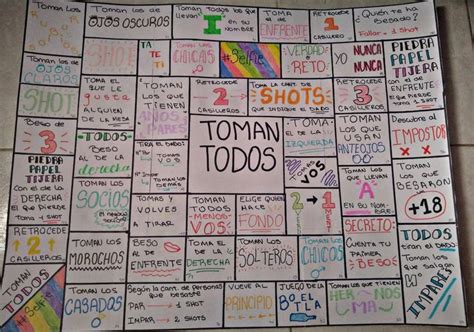 TOMAN
LOS
Toman los de
OJOS OSCUROS
Toman
los que
llevan
I
en su
nombre
TOMA
EL DE
ENFRENTE
RETROCEDE
1
CASILLERO
Quién te ha
besado?
Fallar = 1 Shot
Toman los
de OJOS
CLAROS
SHOT
TA
TE
TI
TOMAN LAS
CHICAS
#Selfie
VERDAD
RETO
YO NUNCA
NUNCA
PIEDRA
PAPEL
TIJERA
CON EL DE
ENFRENTE
Que pierde
TOMA 1 SHOT
SHOT
TOMA EL
QUE LE
gusta
ALGUIEN
DE LA MESA
TOMAN
LOS QUE
TIENEN
AÑOS
PARES
RETROCEDE
2
CASILLEROS
TOMA LA CANT. DE
SHOTS
QUE INDIQUE EL DADO
RETROCEDE
3
CASILLEROS
Beso de
3
-TODOS-
BESO
AL DE LA
derecha
TIRA EL DADO:
TOMÁS
TOMAN
LOS DEMÁS
TOMAN
TODOS
TOMA-
EL DE LA
IZQUIERDA
TOMAN
LOS QUE
USAN
ANTEOJOS
Descubre al
IMPOSTOR
PIEDRA
PAPEL
TIJERA
con el de la
DERECHA
EL QUE PIERDE
TOMA 1 SHOT
TOMAN LOS
SOCIOS
TOMAS Y
VOLVES A
TIRAR
TOMAN
TODOS
MENOS
VOS
ELIGE QUIEN
HACE
FONDO
TOMAS
VOS
2
1
TOMAN
LOS QUE
LLEVAN
"A"
EN SU
NOMBRE
TOMAN
LOS QUE
BESARON
+18
RETROCEDE
2
CASILLEROS
TOMAN LOS
MOROCHOS
BESO
AL DE
ENFRENTE
TOMA
EL DE LA
DERECHA
TOMAN LOS
SOLTEROS
TOMAN LOS
CHICOS
SECRETO
CUENTA TU
PRIMER
BESO
TODOS
tiran el DADO
Toman los
que salgan
IMPARES
TOMAN
TODOS
#Selfie
TOMAN LOS
CASADOS
Según la cant. de personas
que besaste
PAR → SHOT
IMPAR → 2 SHOTS
VUELVE AL
PRINCIPIO
JUEGO DE LA
BOTELLA
TOMAN LOS
QUE TIENEN
HERMANOS